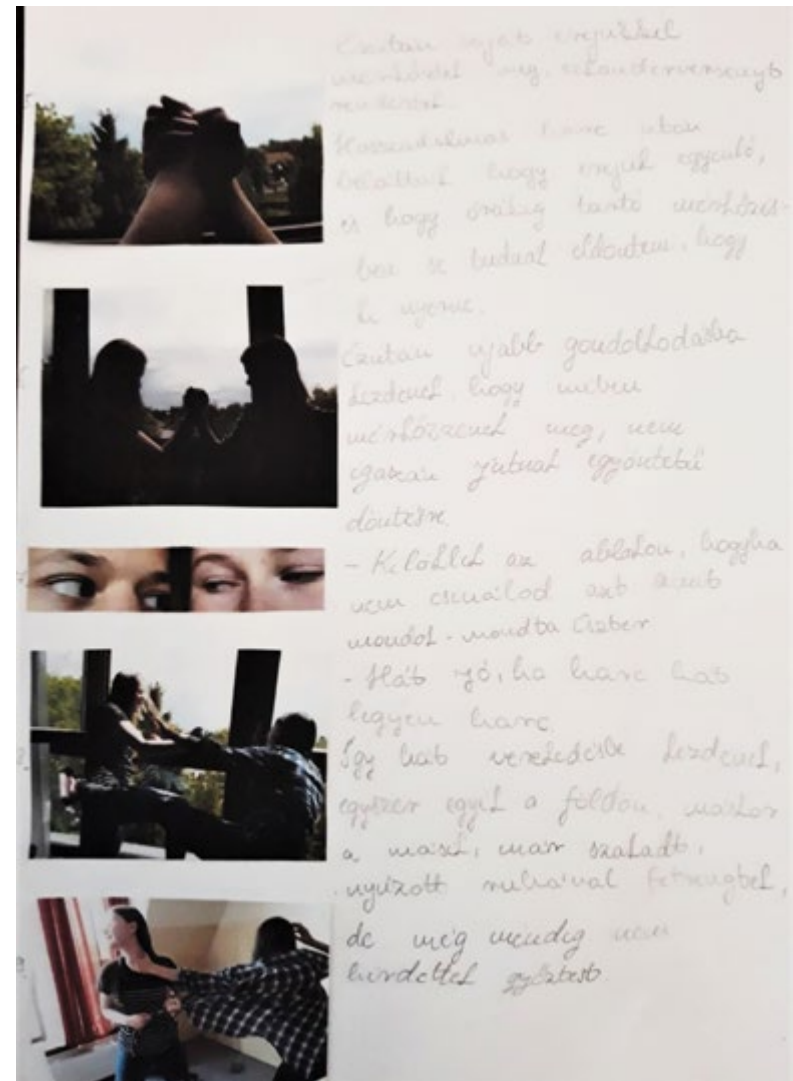 Ezután saját erejükkel
mérkőztek meg, szkanderversenyt
rendeztek.
Hosszadalmas harc után
belátták hogy erejük egyenlő,
és hogy óráig tartó mérkőzés-
ben se tudnák eldönteni, hogy
ki nyerne.
Ezután újabb gondolkodásba
kezdenek, hogy miben
mérkőzzenek meg, nem
igazán jutnak egyöntetű
döntésre.
- Kilöklek az ablakon, hogyha
nem csinálod azt amit
mondok - mondta Eszter
- Hát jó, ha harc hát
legyen harc.
Így hát verekedésbe kezdenek,
egyszer egyik a földön, máskor
a másik, már szakadt,
nyúzott ruhával fetrengtek,
de még mindig nem
hirdettek győztest.